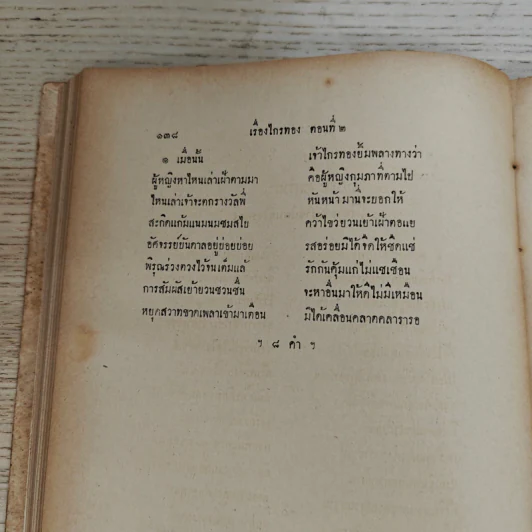 ๑๓๘ เรื่องไกรทอง ตอนที่ ๒
๑ เมื่อนั้น เจ้าไกรทองยิ้มพลางทางว่า
ผู้หญิงหาไหนเล่าเฝ้าตามมา คือผู้หญิงกุมภาที่ตามไป
ไหนเล่าเจ้าจะตกรางวัลพี่ หันหน้ามานี่จะยอกให้
สะกิดแก้มแนมนมชมสไบ คว้าไขว่ยวนเย้าเฝ้าตอแย
อัศจรรย์บันดาลอยู่บ่อยบ่อย รสอร่อยมิได้จืดให้ชืดแช่
พิรุณร่วงดวงไว้จนเต็มแล้ รักกันคุ้มแก่ไม่แชเชือน
การสัมผัสเย้ายวนชวนชื่น จะหาอื่นมาให้ดีไม่มีเหมือน
หยุดสวาทขาดเพลาเข้ามาเตือน มิได้เคลื่อนคลาดคลารารอ
ฯ ๘ คำ ฯ